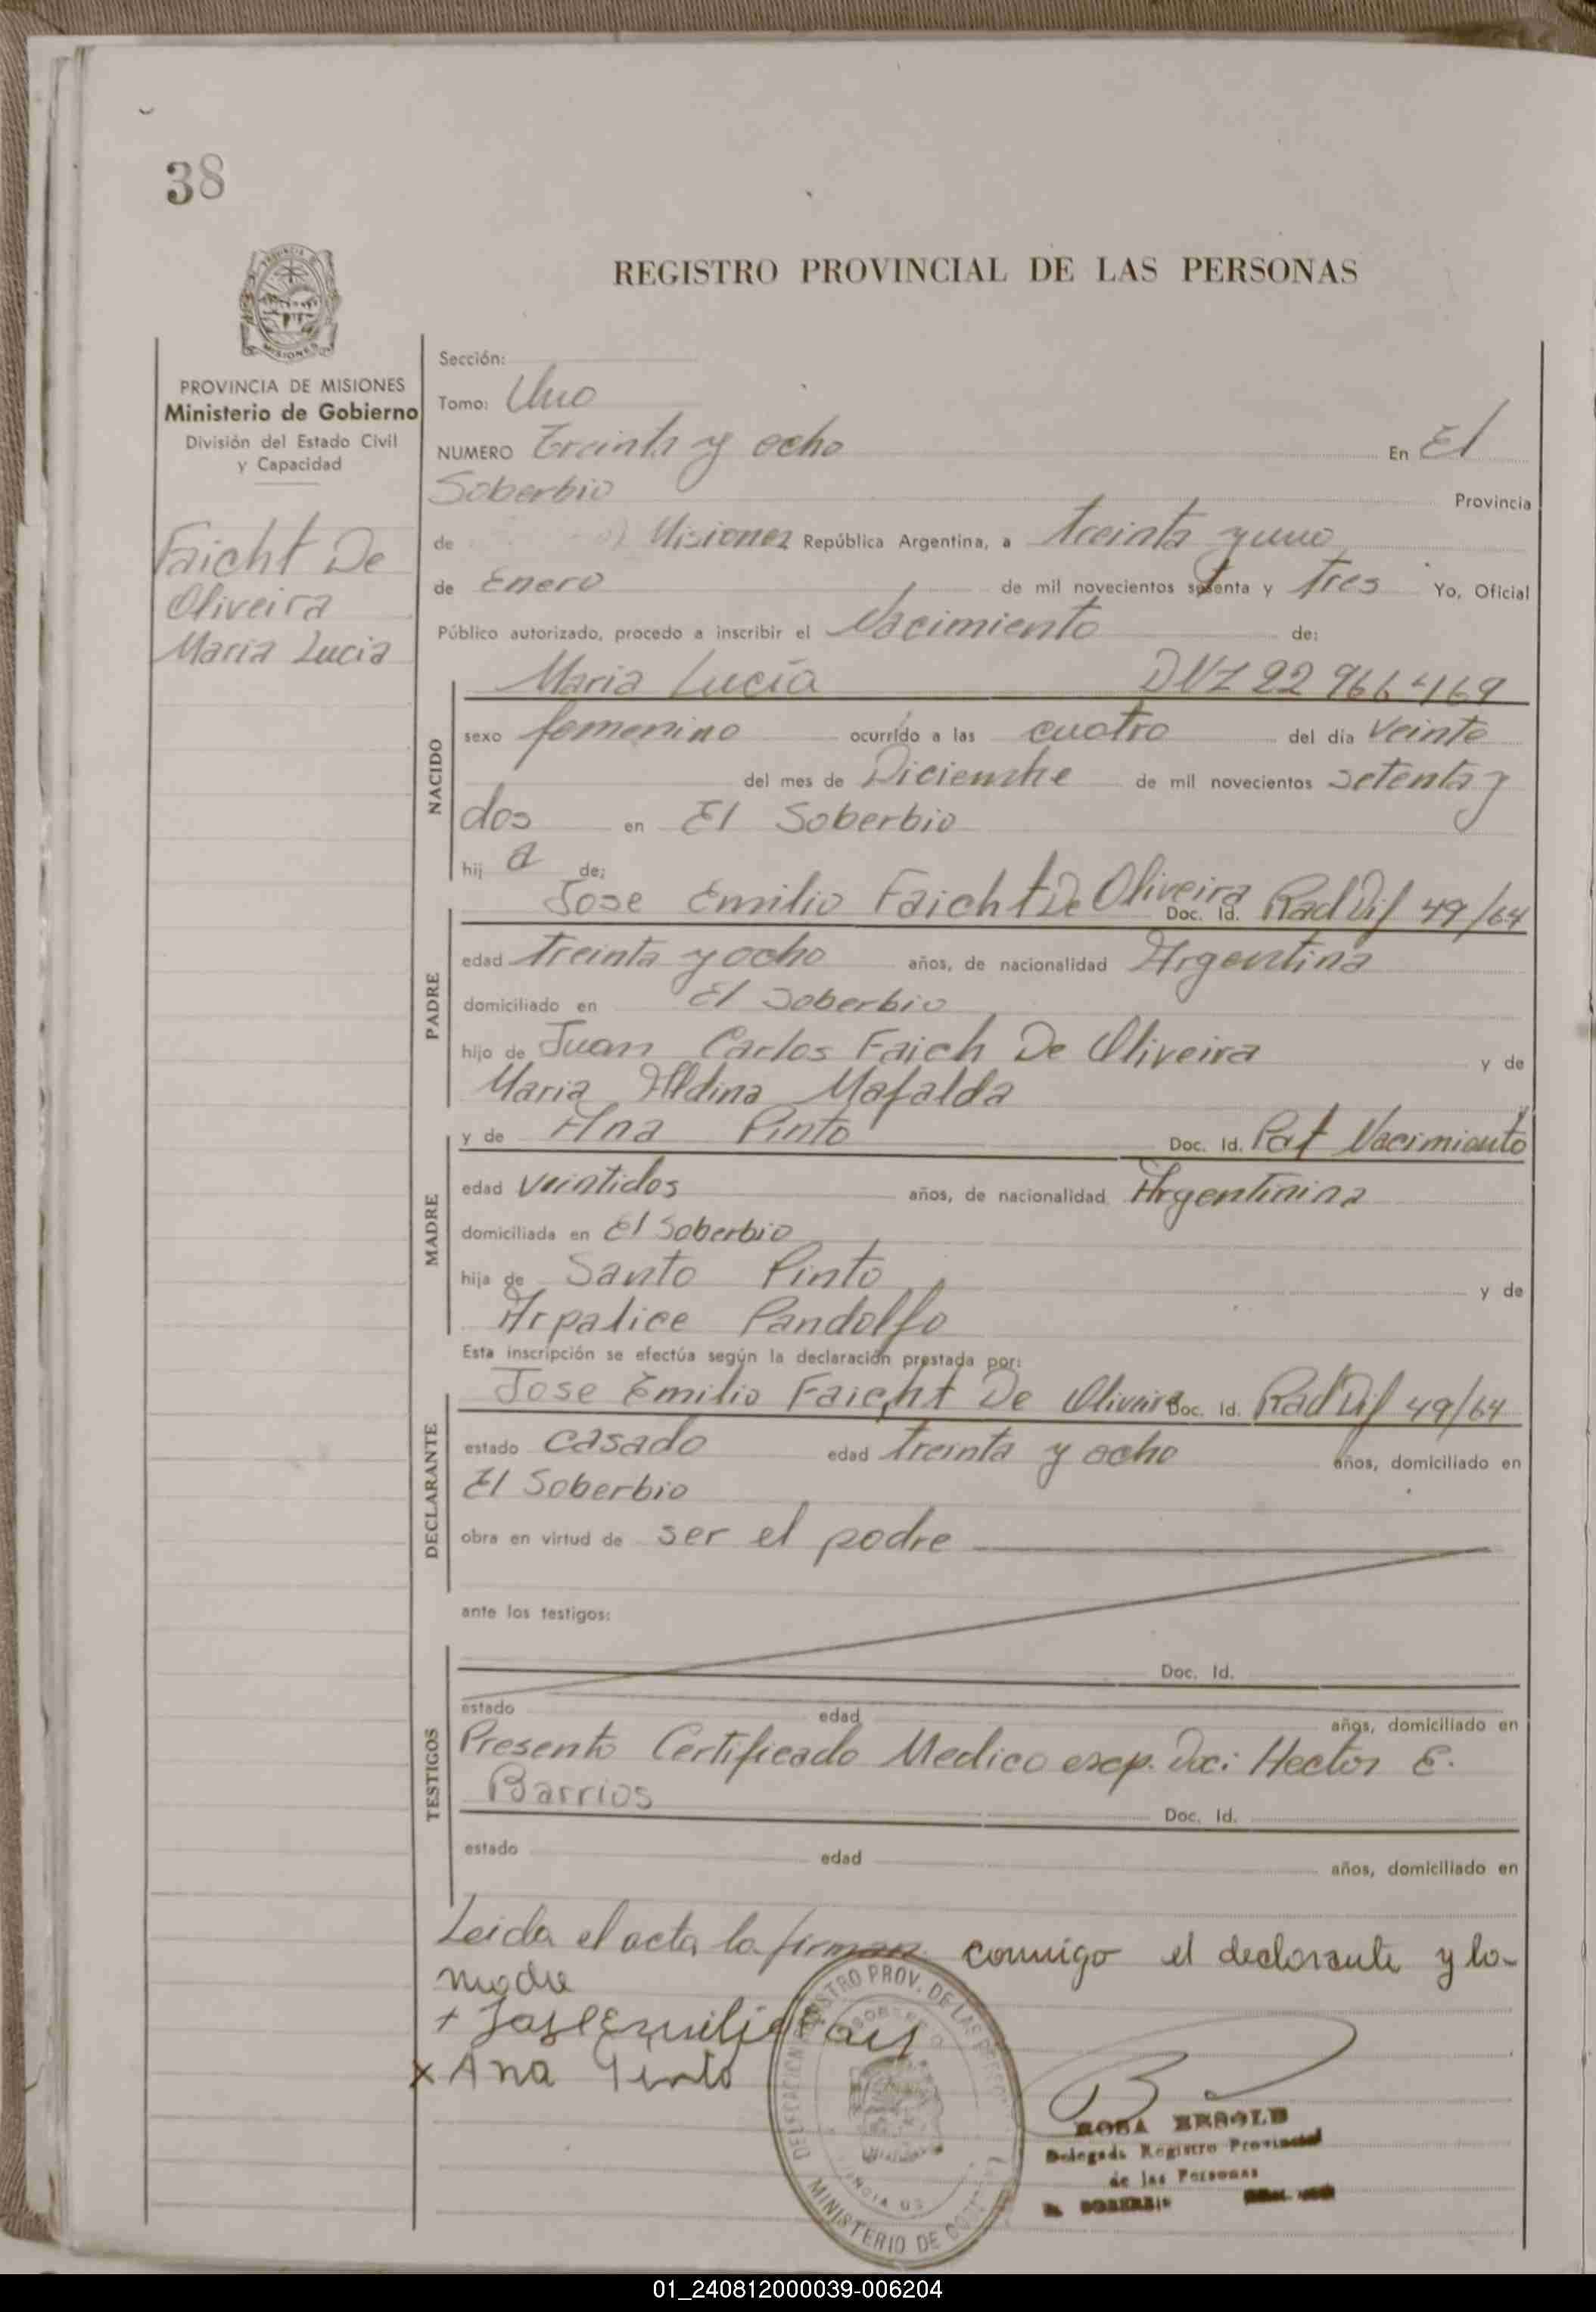 38
REGISTRO PROVINCIAL DE LAS PERSONAS
MISIONES
PROVINCIA DE MISIONES
Ministerio de Gobierno
División del Estado Civil
y Capacidad
Faicht De
Oliveira
Maria Lucia
Sección:
Tomo: Uno
NUMERO Treinta y ocho En El
Soberbio Provincia
de Misiones República Argentina, a treinta y uno
de Enero de mil novecientos setenta y tres Yo, Oficial
Público autorizado, procedo a inscribir el Nacimiento de:
NACIDO
Maria Lucía DNI 22 966 469
sexo femenino ocurrido a las cuatro del día veinte
del mes de Diciembre de mil novecientos setenta y
dos en El Soberbio
hij a de:
PADRE
Jose Emilio Faicht De Oliveira Doc. Id. Rad Dif 49/64
edad treinta y ocho años, de nacionalidad Argentina
domiciliado en El Soberbio
hijo de Juan Carlos Faich De Oliveira y de
Maria Aldina Mafalda
MADRE
y de Ana Pinto Doc. Id. Part Nacimiento
edad veintidos años, de nacionalidad Argentinina
domiciliada en El Soberbio
hija de Santo Pinto y de
Arpalice Pandolfo
Esta inscripción se efectúa según la declaración prestada por:
DECLARANTE
Jose Emilio Faicht De Oliveira Doc. Id. Rad Dif 49/64
estado casado edad treinta y ocho años, domiciliado en
El Soberbio
obra en virtud de ser el padre
ante los testigos:
TESTIGOS
Doc. Id.
estado edad años, domiciliado en
Presento Certificado Medico Hector E.
Barrios Doc. Id.
estado edad años, domiciliado en
Leida el acta la firman conmigo el declarante y la
madre
+ Jose Emilio
x Ana Pinto
MINISTERIO DE
Delegada Registro Provincial
de las Personas
01_240812000039-006204